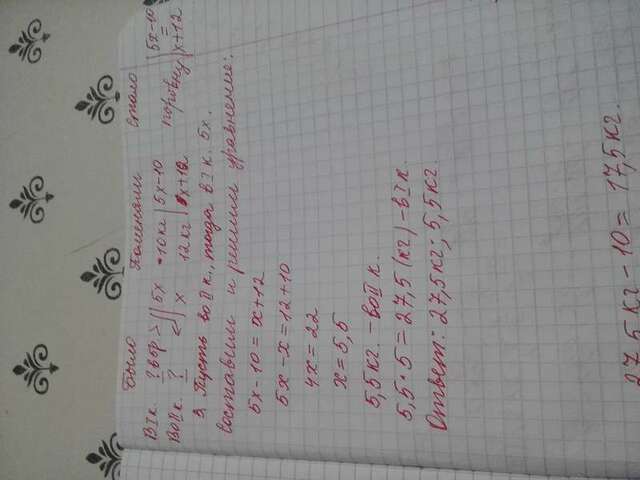 Было Поменяли Стало
В I к. ? в 5 р > 5x -10 кг 5x-10 поровну 5x-10
Во II к. ? x 12 кг x+12 = x+12
Пусть во II к., тогда в I к. 5x.
Составим и решим уравнение:
5x-10=x+12
5x-x=12+10
4x=22
x=5,5
5,5 кг. - во II к.
5,5 · 5 = 27,5 (кг) - в I к.
Ответ: 27,5 кг; 5,5 кг.
27,5 кг - 10 = 17,5 кг.